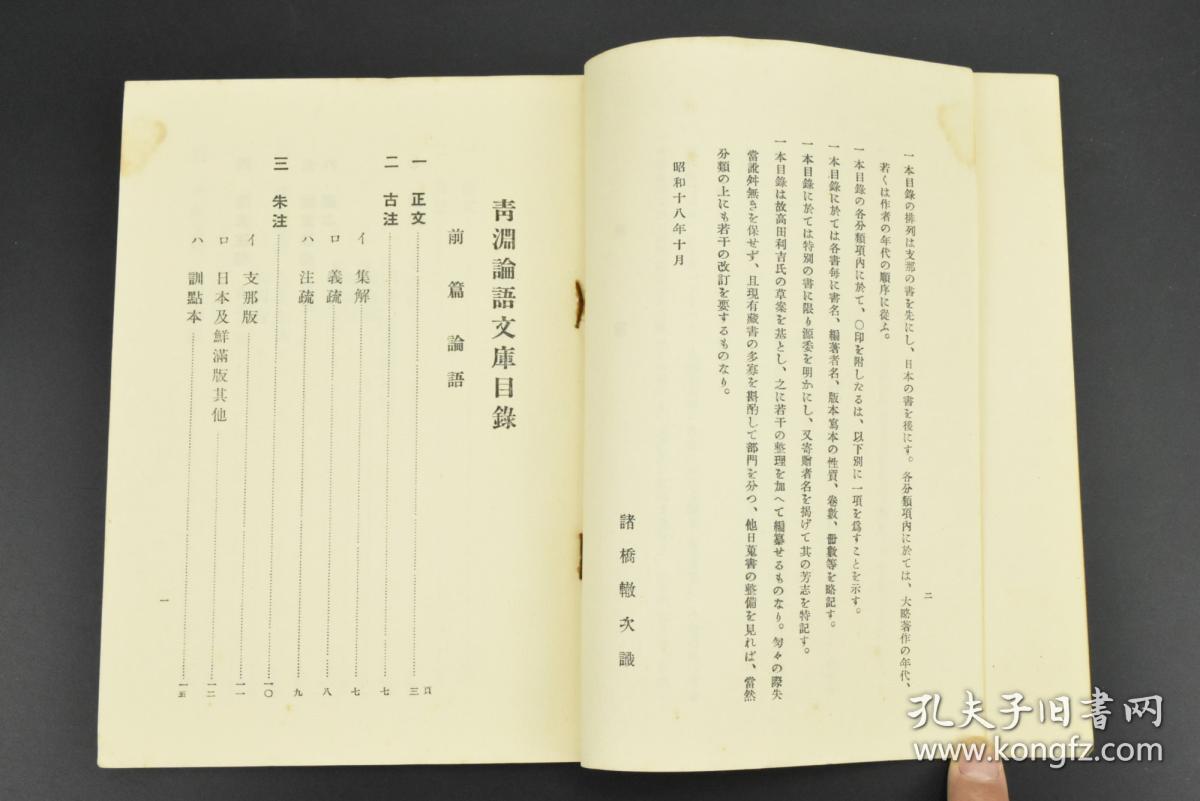 一本目錄の排列は支那の書を先にし、日本の書を後にす。各分類項內に於ては、大略著作の年代、
若くは作者の年代の順序に從ふ。
一本目錄の各分類項內に於て、〇印を附したるは、以下別に一項を爲すことを示す。
一本目錄に於ては各書每に書名、編著者名、版本寫本の性質、卷數、册數等を略記す。
一本目錄に於ては特別の書に限り源委を明かにし、又寄贈者名を揭げて其の芳志を特記す。
一本目錄は故高田利吉氏の草案を基とし、之に若干の整理を加へて編纂せるものなり。匆々の際失
當訛舛無きを保せず、且現有藏書の多寡を斟酌して部門を分つ、他日蒐書の整備を見れば、當然
分類の上にも若干の改訂を要するものなり。
昭和十八年十月
諸橋轍次識
二
靑淵論語文庫目錄
前篇 論語
一 正文……三頁
二 古注……七
イ 集解……七
ロ 義疏……八
ハ 注疏……九
三 朱注……一〇
イ 支那版……一一
ロ 日本及鮮滿版其他……一二
ハ 訓點本……一五
一
孔夫子旧书网
www.kongfz.com